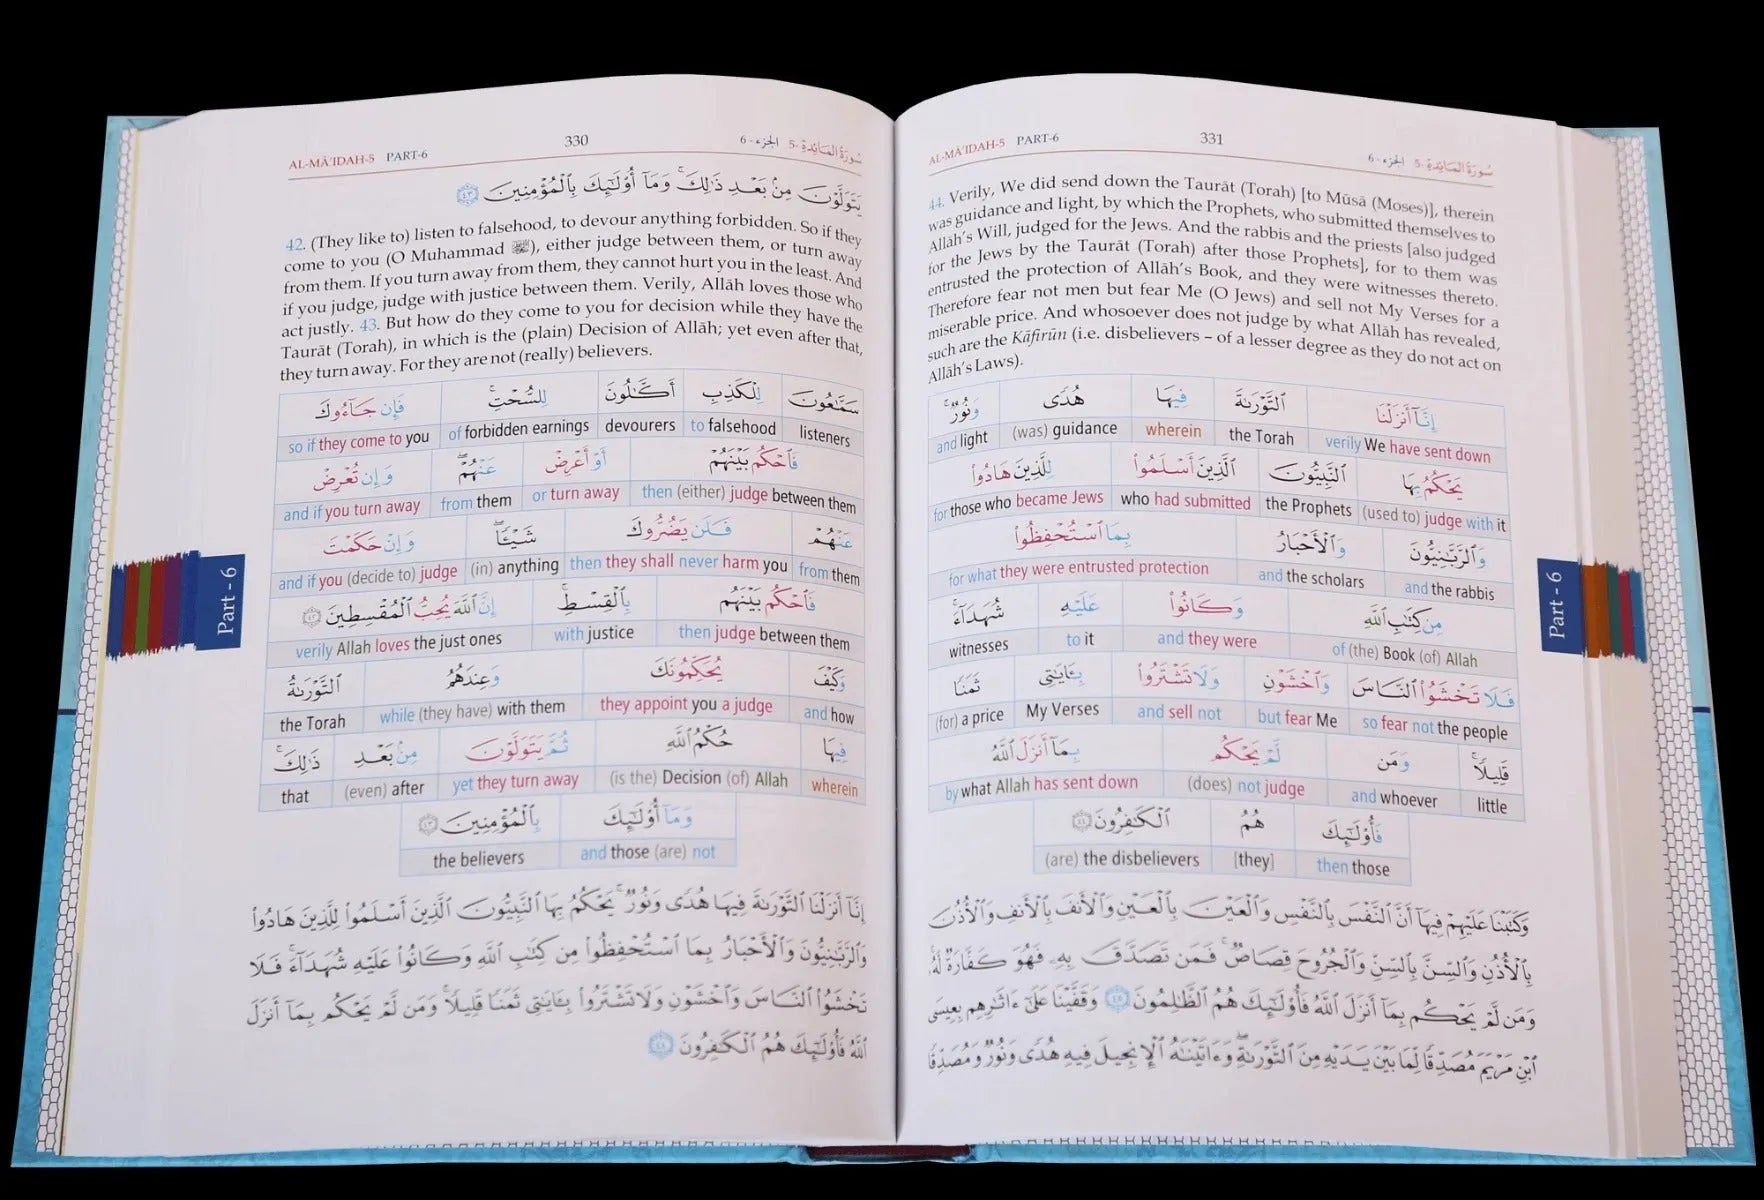 AL-MĀ'IDAH-5 PART-6 330 الجزء - 6 سُورَةُ المَائِدَةِ -5
يَتَوَلَّوْنَ مِنۢ بَعْدِ ذَٰلِكَ ۚ وَمَآ أُوْلَـٰٓئِكَ بِٱلْمُؤْمِنِينَ ٤٣
42. (They like to) listen to falsehood, to devour anything forbidden. So if they
come to you (O Muhammad ﷺ), either judge between them, or turn away
from them. If you turn away from them, they cannot hurt you in the least. And
if you judge, judge with justice between them. Verily, Allāh loves those who
act justly. 43. But how do they come to you for decision while they have the
Taurāt (Torah), in which is the (plain) Decision of Allāh; yet even after that,
they turn away. For they are not (really) believers.
سَمَّـٰعُونَ لِلْكَذِبِ أَكَّـٰلُونَ لِلسُّحْتِ ۚ فَإِن جَآءُوكَ
so if they come to you of forbidden earnings devourers to falsehood listeners
فَٱحْكُم بَيْنَهُمْ أَوْ أَعْرِضْ عَنْهُمْ ۖ وَإِن تُعْرِضْ
and if you turn away from them or turn away then (either) judge between them
عَنْهُمْ فَلَن يَضُرُّوكَ شَيْـًٔا ۖ وَإِنْ حَكَمْتَ
and if you (decide to) judge (in) anything then they shall never harm you from them
فَٱحْكُم بَيْنَهُم بِٱلْقِسْطِ ۚ إِنَّ ٱللَّهَ يُحِبُّ ٱلْمُقْسِطِينَ ٤٢
verily Allah loves the just ones with justice then judge between them
وَكَيْفَ يُحَكِّمُونَكَ وَعِندَهُمُ ٱلتَّوْرَىٰةُ
the Torah while (they have) with them they appoint you a judge and how
فِيهَا حُكْمُ ٱللَّهِ ثُمَّ يَتَوَلَّوْنَ مِنۢ بَعْدِ ذَٰلِكَ ۚ
that (even) after yet they turn away (is the) Decision (of) Allah wherein
وَمَآ أُوْلَـٰٓئِكَ بِٱلْمُؤْمِنِينَ ٤٣
the believers and those (are) not
إِنَّآ أَنزَلْنَا ٱلتَّوْرَىٰةَ فِيهَا هُدًى وَنُورٌ ۚ يَحْكُمُ بِهَا ٱلنَّبِيُّونَ ٱلَّذِينَ أَسْلَمُوا۟ لِلَّذِينَ هَادُوا۟
وَٱلرَّبَّـٰنِيُّونَ وَٱلْأَحْبَارُ بِمَا ٱسْتُحْفِظُوا۟ مِن كِتَـٰبِ ٱللَّهِ وَكَانُوا۟ عَلَيْهِ شُهَدَآءَ ۚ فَلَا
تَخْشَوُا۟ ٱلنَّاسَ وَٱخْشَوْنِ وَلَا تَشْتَرُوا۟ بِـَٔايَـٰتِى ثَمَنًا قَلِيلًا ۚ وَمَن لَّمْ يَحْكُم بِمَآ أَنزَلَ
ٱللَّهُ فَأُوْلَـٰٓئِكَ هُمُ ٱلْكَـٰفِرُونَ ٤٤
Part - 6
AL-MĀ'IDAH-5 PART-6 331 الجزء - 6 سُورَةُ المَائِدَةِ -5
44. Verily, We did send down the Taurāt (Torah) [to Mūsā (Moses)], therein
was guidance and light, by which the Prophets, who submitted themselves to
Allāh's Will, judged for the Jews. And the rabbis and the priests [also judged
for the Jews by the Taurāt (Torah) after those Prophets], for to them was
entrusted the protection of Allāh's Book, and they were witnesses thereto.
Therefore fear not men but fear Me (O Jews) and sell not My Verses for a
miserable price. And whosoever does not judge by what Allāh has revealed,
such are the Kāfirūn (i.e. disbelievers – of a lesser degree as they do not act on
Allāh's Laws).
إِنَّآ أَنزَلْنَا ٱلتَّوْرَىٰةَ فِيهَا هُدًى وَنُورٌ ۚ
and light (was) guidance wherein the Torah verily We have sent down
يَحْكُمُ بِهَا ٱلنَّبِيُّونَ ٱلَّذِينَ أَسْلَمُوا۟ لِلَّذِينَ هَادُوا۟
for those who became Jews who had submitted the Prophets (used to) judge with it
وَٱلرَّبَّـٰنِيُّونَ وَٱلْأَحْبَارُ بِمَا ٱسْتُحْفِظُوا۟
for what they were entrusted protection and the scholars and the rabbis
مِن كِتَـٰبِ ٱللَّهِ وَكَانُوا۟ عَلَيْهِ شُهَدَآءَ ۚ
witnesses to it and they were of (the) Book (of) Allah
فَلَا تَخْشَوُا۟ ٱلنَّاسَ وَٱخْشَوْنِ وَلَا تَشْتَرُوا۟ بِـَٔايَـٰتِى ثَمَنًا
(for) a price My Verses and sell not but fear Me so fear not the people
قَلِيلًا ۚ وَمَن لَّمْ يَحْكُم بِمَآ أَنزَلَ ٱللَّهُ
by what Allah has sent down (does) not judge and whoever little
فَأُوْلَـٰٓئِكَ هُمُ ٱلْكَـٰفِرُونَ ٤٤
(are) the disbelievers [they] then those
وَكَتَبْنَا عَلَيْهِمْ فِيهَآ أَنَّ ٱلنَّفْسَ بِٱلنَّفْسِ وَٱلْعَيْنَ بِٱلْعَيْنِ وَٱلْأَنفَ بِٱلْأَنفِ وَٱلْأُذُنَ
بِٱلْأُذُنِ وَٱلسِّنَّ بِٱلسِّنِّ وَٱلْجُرُوحَ قِصَاصٌ ۚ فَمَن تَصَدَّقَ بِهِۦ فَهُوَ كَفَّارَةٌ لَّهُۥ ۚ
وَمَن لَّمْ يَحْكُم بِمَآ أَنزَلَ ٱللَّهُ فَأُوْلَـٰٓئِكَ هُمُ ٱلظَّـٰلِمُونَ ٤٥ وَقَفَّيْنَا عَلَىٰٓ ءَاثَـٰرِهِم بِعِيسَى
ٱبْنِ مَرْيَمَ مُصَدِّقًا لِّمَا بَيْنَ يَدَيْهِ مِنَ ٱلتَّوْرَىٰةِ ۖ وَءَاتَيْنَـٰهُ ٱلْإِنجِيلَ فِيهِ هُدًى وَنُورٌ وَمُصَدِّقًا
Part - 6